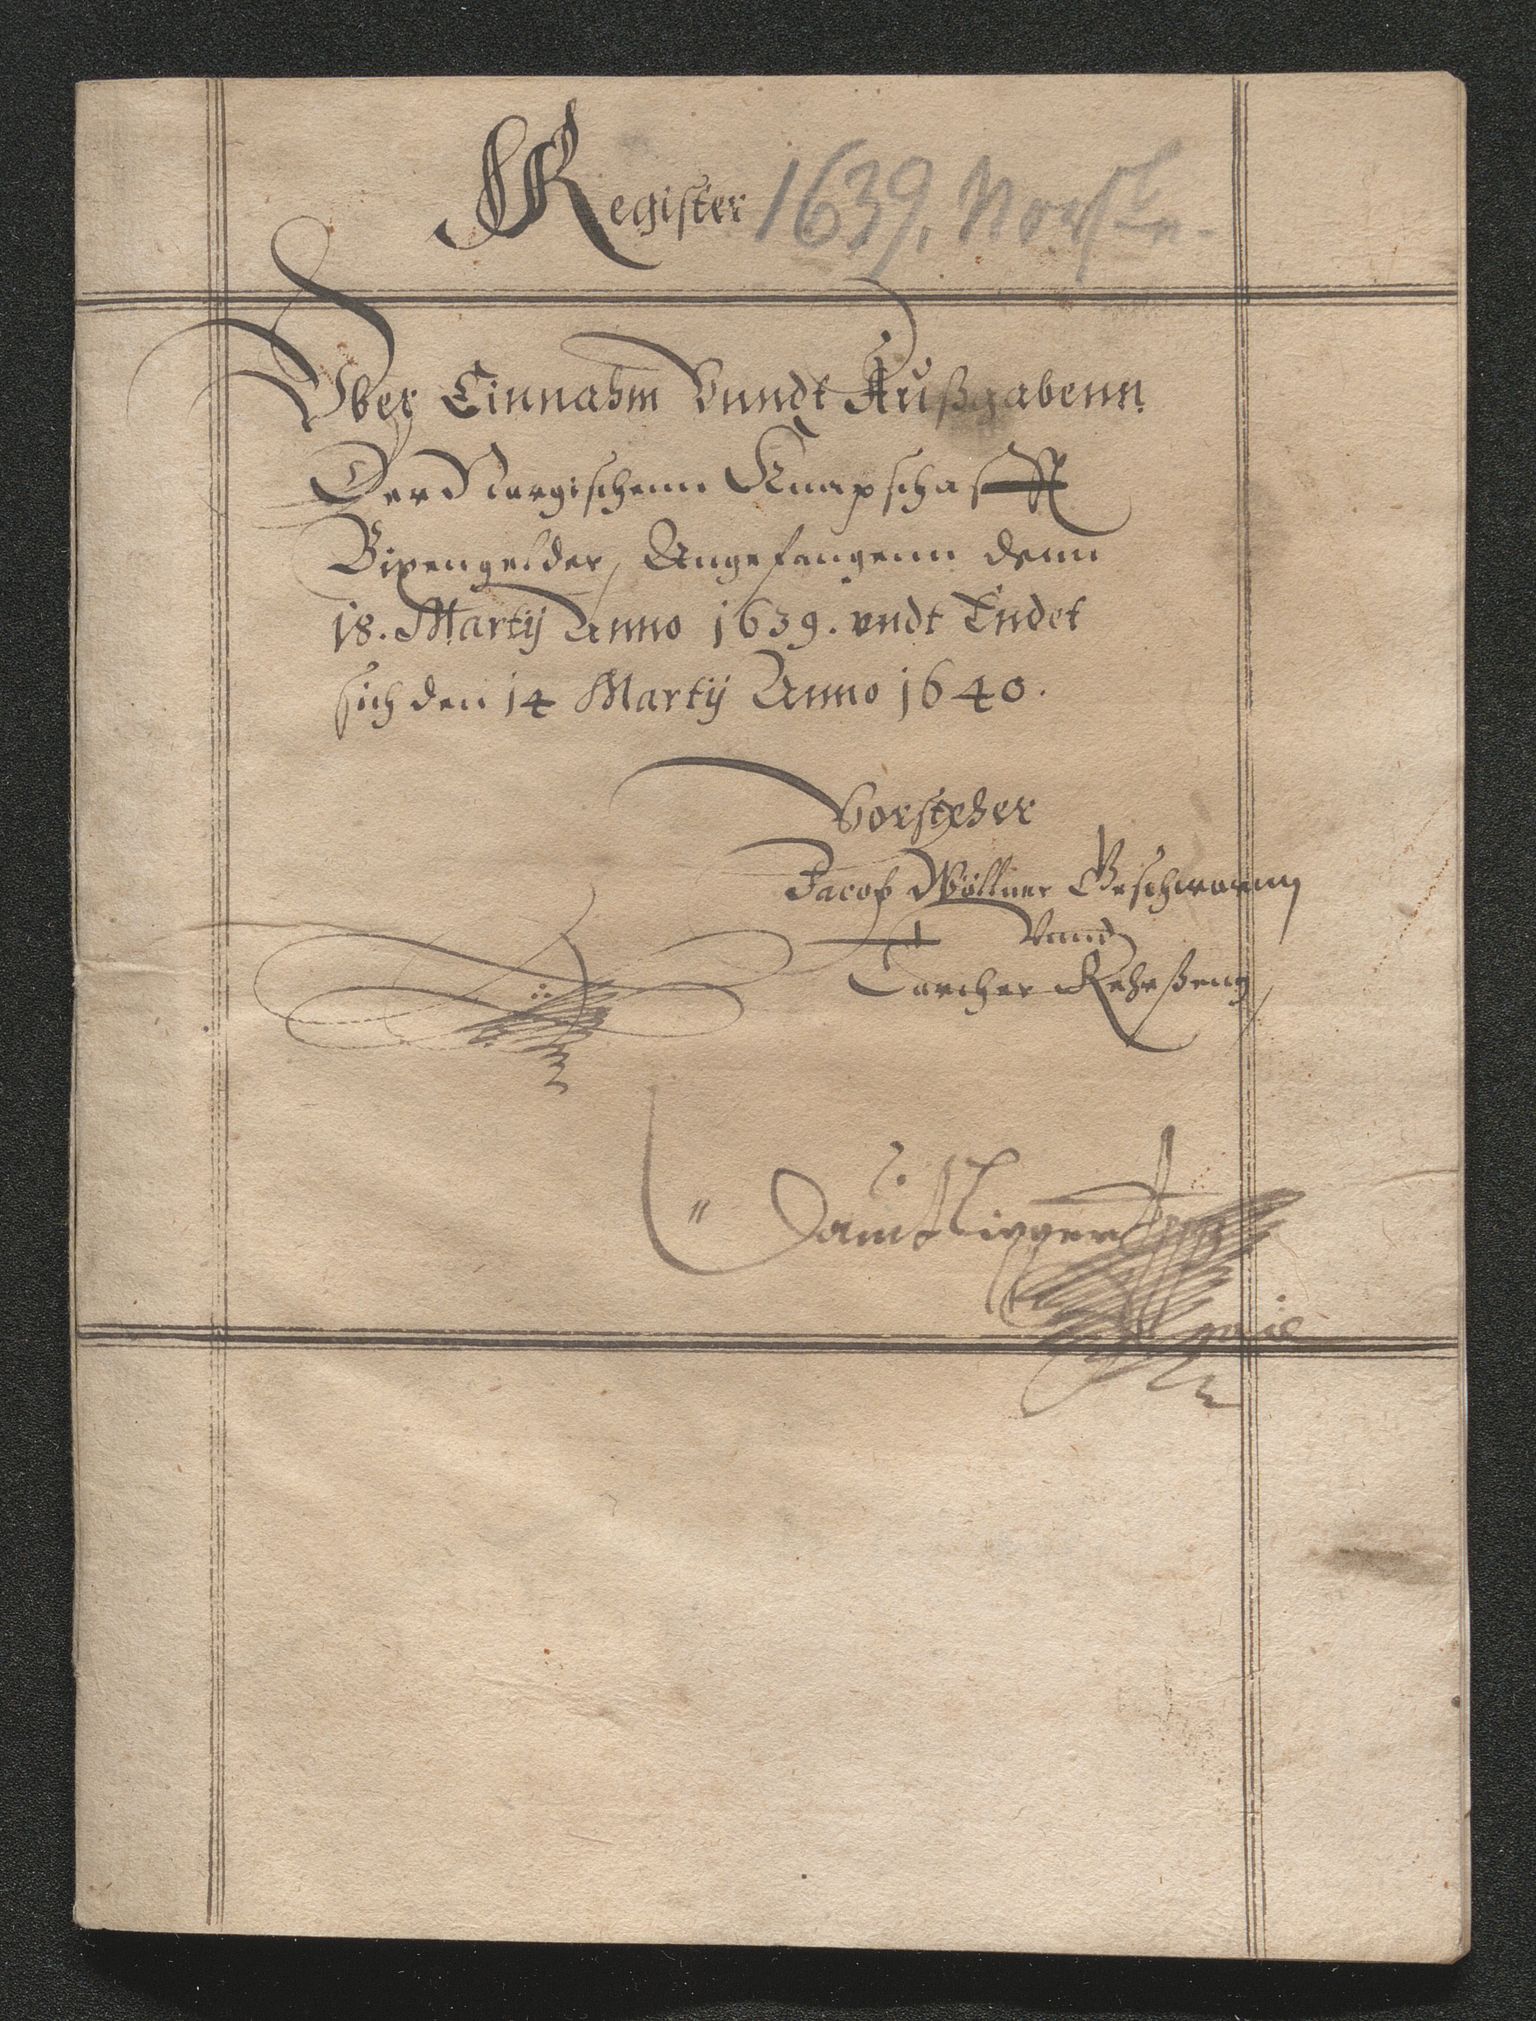 Register 1639. Norske.
Vber Einnahm Vnndt Außgabenn
Der Norgischenn Knapschafft
Bixengelder, Angefangenn denn
18. Martij Anno 1639. vndt Endet
sich den 14 Martij Anno 1640.
Vorsteher
Jacob Wöllner Geschworenn
Vnnd